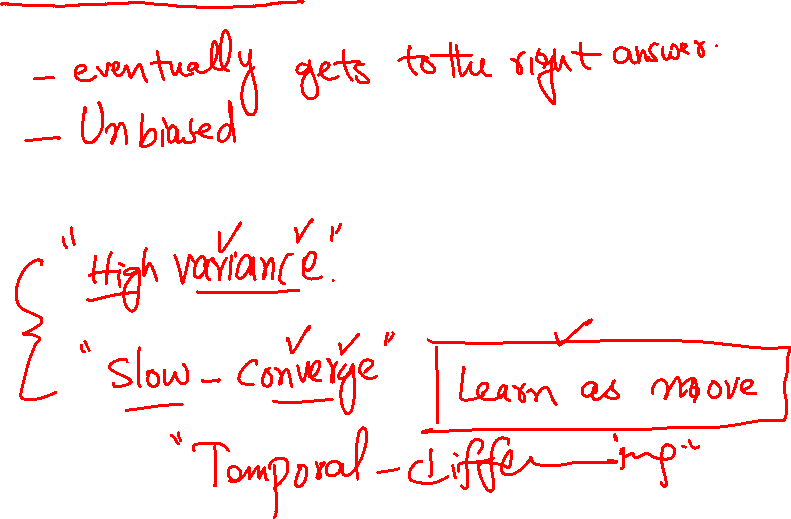 - eventually gets to the right answer.
- Unbiased
"High variance".
"Slow - Converge" Learn as move
"Temporal -